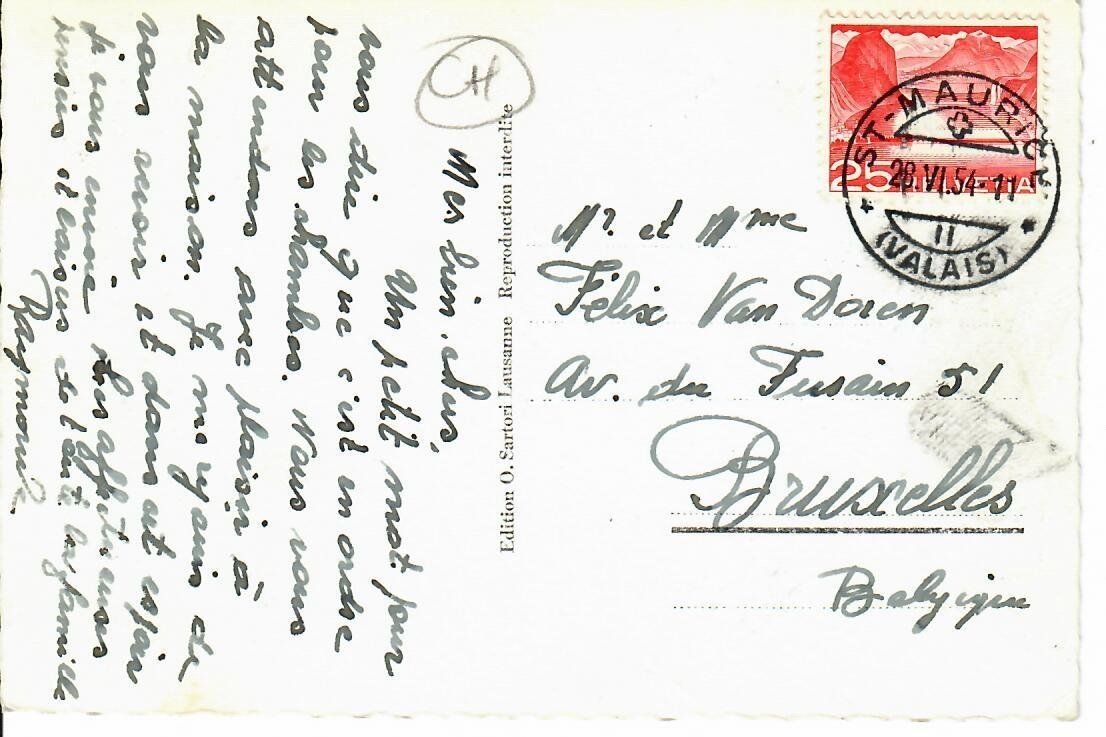 CH
Mes bien chers,
Un petit mot pour
vous dire que c'est en ordre
pour les chambres. Nous vous
attendons avec plaisir à
la maison. Je me réjouis de
vous revoir et dans cet espoir
je vous envoie les affectueuses
pensées et baisers de toute la famille
Raymonde
Edition O. Sartori Lausanne Reproduction interdite
25 HELVETIA
ST-MAURICE
28.VI.54-11
II
(VALAIS)
Mr. et Mme
Félix Van Doren
Av. du Fusain 51
Bruxelles
Belgique